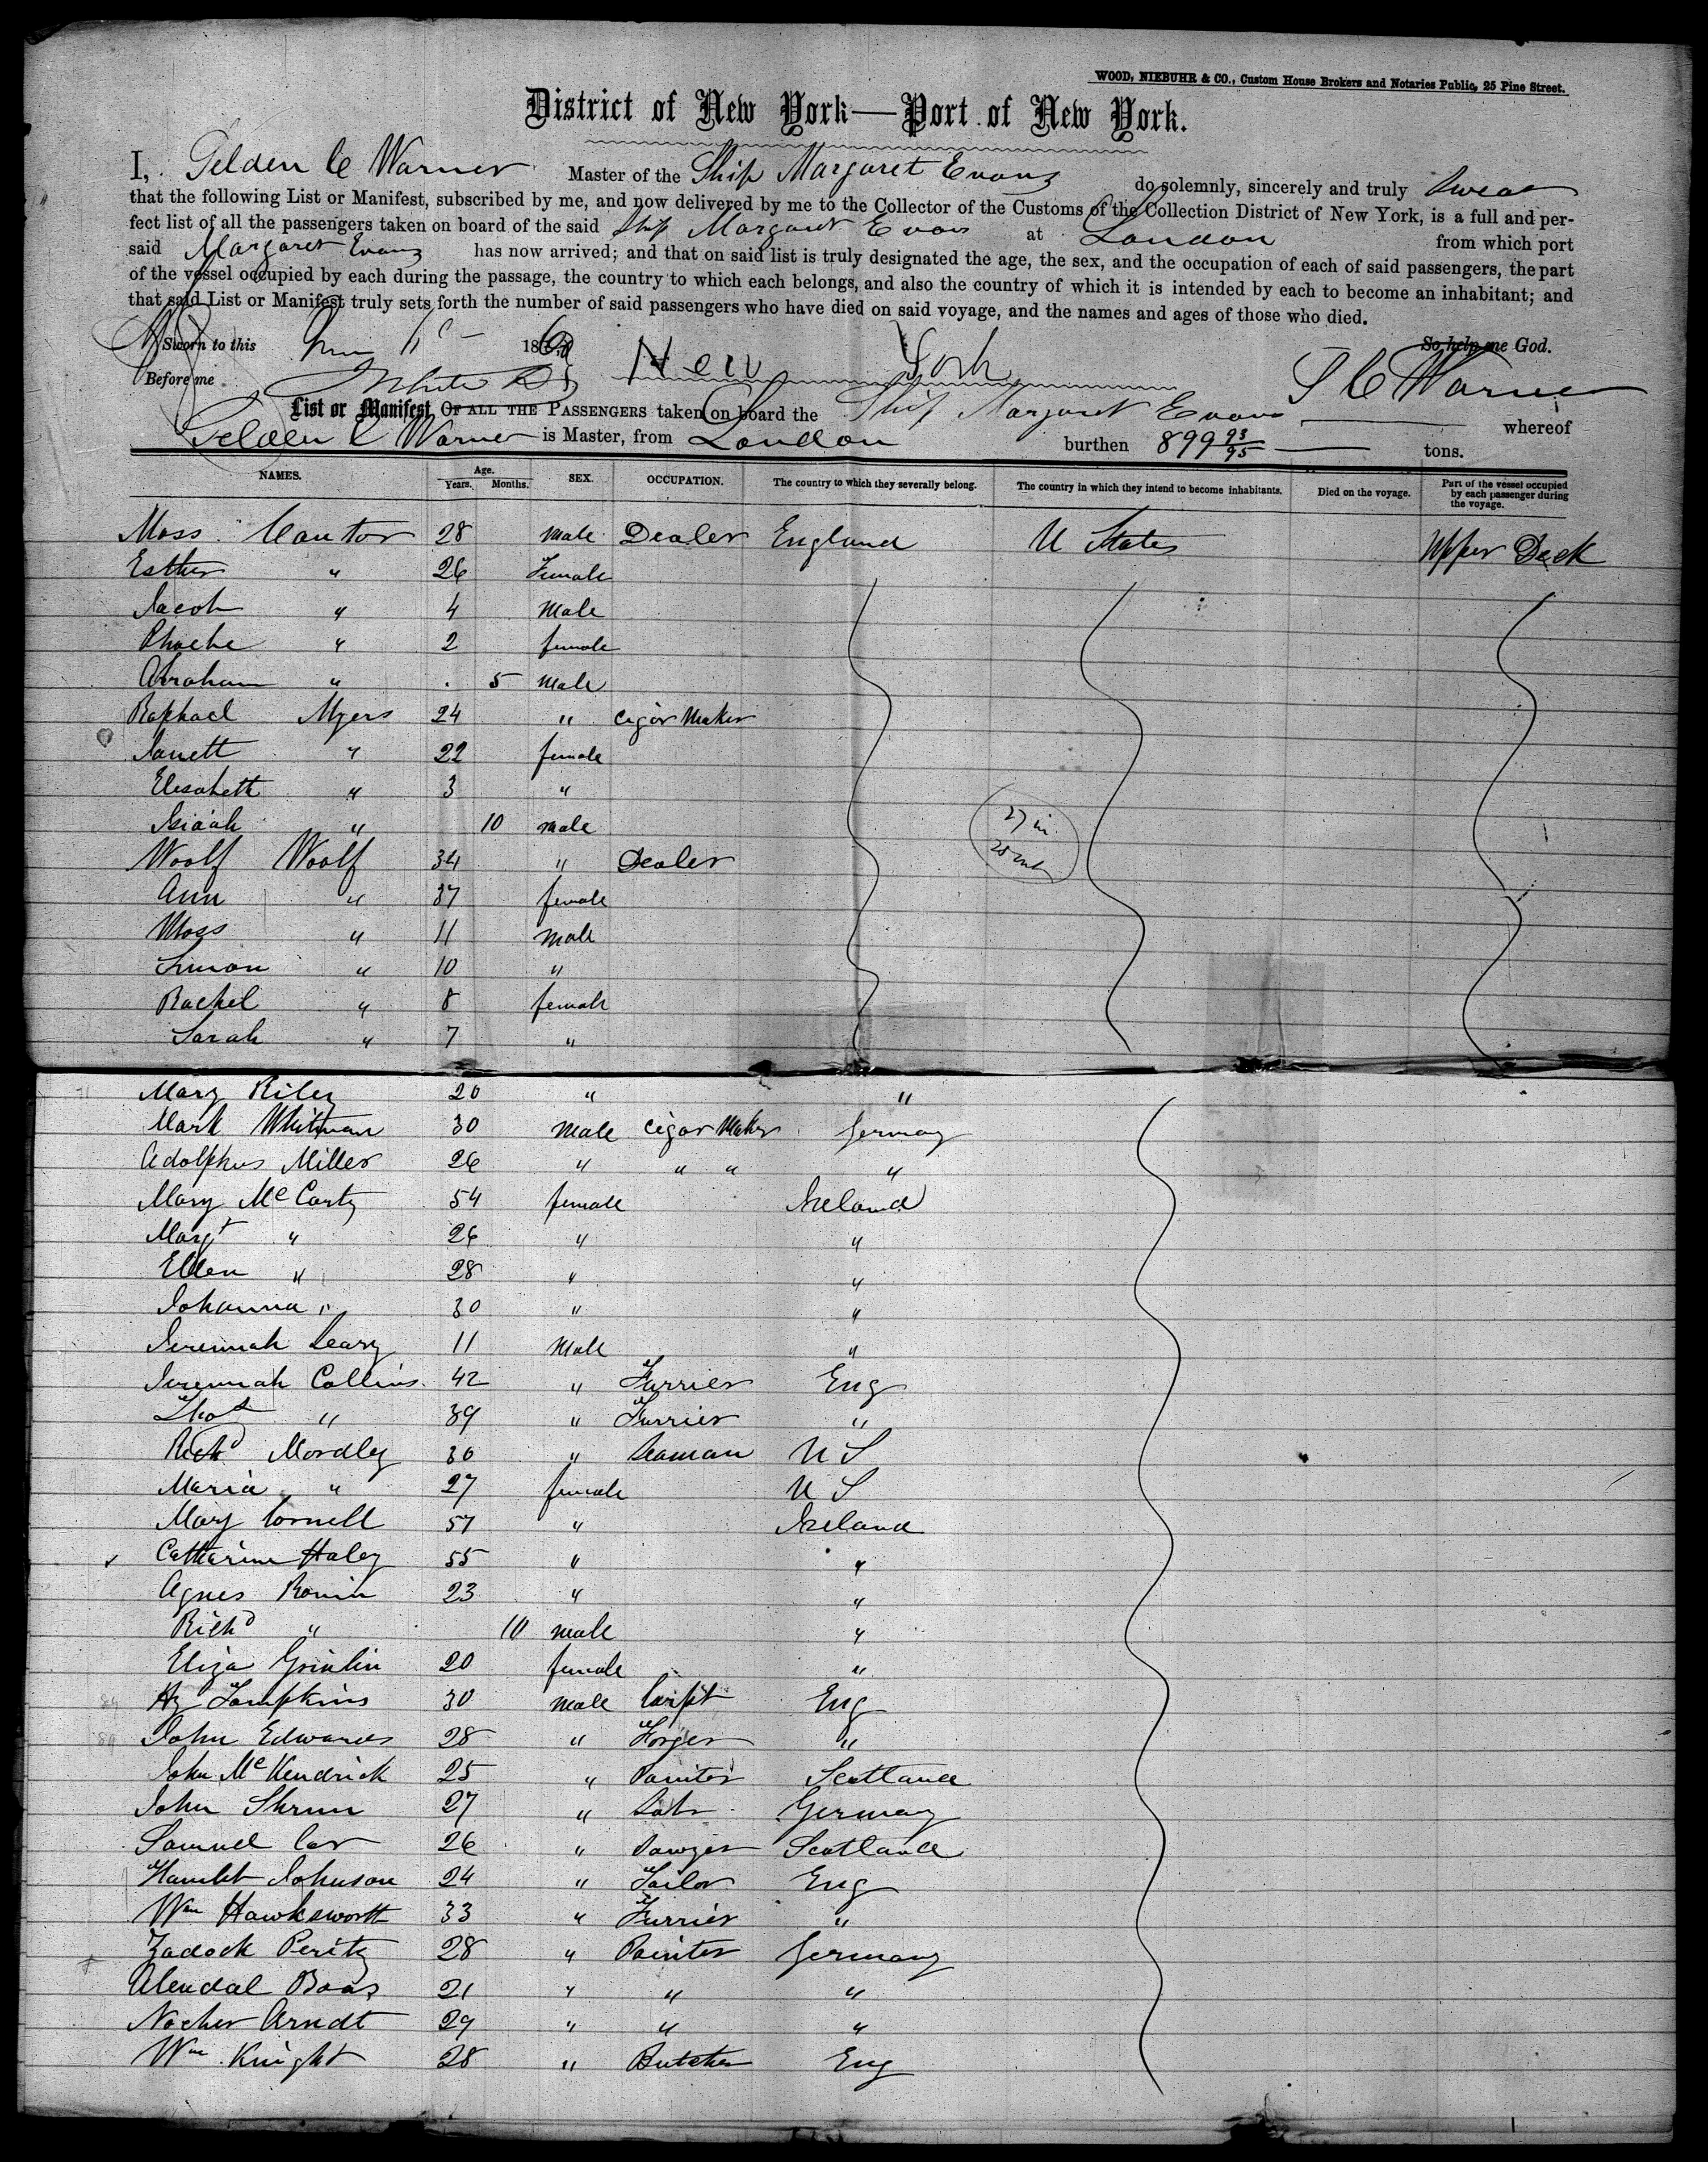 WOOD, NIEBUHR & CO., Custom House Brokers and Notaries Public, 25 Pine Street.
District of New York—Port of New York.
I, Gelden C Warner Master of the Ship Margaret Evans do solemnly, sincerely and truly swear
that the following List or Manifest, subscribed by me, and now delivered by me to the Collector of the Customs of the Collection District of New York, is a full and per-
fect list of all the passengers taken on board of the said Ship Margaret Evans at London from which port
said Margaret Evans has now arrived; and that on said list is truly designated the age, the sex, and the occupation of each of said passengers, the part
of the vessel occupied by each during the passage, the country to which each belongs, and also the country of which it is intended by each to become an inhabitant; and
that said List or Manifest truly sets forth the number of said passengers who have died on said voyage, and the names and ages of those who died.
Sworn to this 186 New York So help me God.
Before me G C Warner
List or Manifest OF ALL THE PASSENGERS taken on board the Ship Margaret Evans whereof
Gelden C Warner is Master, from London burthen 899 93/95 tons.
NAMES. Age. Years. Months. SEX. OCCUPATION. The country to which they severally belong. The country in which they intend to become inhabitants. Died on the voyage. Part of the vessel occupied by each passenger during the voyage.
Moss Cantor 28 male Dealer England U States Upper Deck
Esther " 26 Female
Jacob " 4 Male
Phoebe " 2 female
Abraham " . 5 male
Raphael Myers 24 " Cigar Maker
Janett " 22 female
Elesabeth " 3 "
Isiaah " 10 male
Woolf Woolf 34 " Dealer
Ann " 37 female
Moss " 11 male
Simon " 10 "
Rachel " 8 female
Sarah " 7 "
Mary Riley 20 " "
Mark Whitman 30 male Cigar Maker Germany
Adolphus Miller 26 " " " "
Mary McCarty 54 female Ireland
Margt " 26 " "
Ellen " 28 " "
Johanna " 30 " "
Jeremiah Leary 11 male "
Jeremiah Collins 42 " Furrier Eng
Thos " 39 " Furrier "
Richd Mordley 30 " Seaman U S
Maria " 27 female U S
Mary Cornell 57 " Ireland
Catharine Haley 55 " "
Agnes Ronin 23 " "
Richd " 10 male "
Eliza Grinlin 20 female "
Hy Tompkins 30 male Carpt Eng
John Edwards 28 " Forger "
John McKendrick 25 " Painter Scotland
John Shrum 27 " Lab Germany
Samuel Car 26 " Sawyer Scotland
Hamlet Johnson 24 " Tailor Eng
Wm Hawksworth 33 " Furrier "
Zadock Peritz 28 " Painter Germany
Mendal Boas 21 " " "
Nocher Arndt 29 " " "
Wm Knight 28 " Butcher Eng